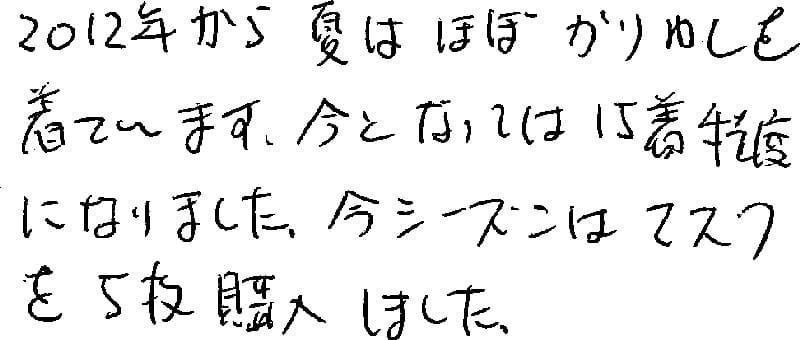 2012年から夏はほぼかりゆしを
着ています。今となっては15着程度
になりました。今シーズンはマスク
を5枚購入しました。